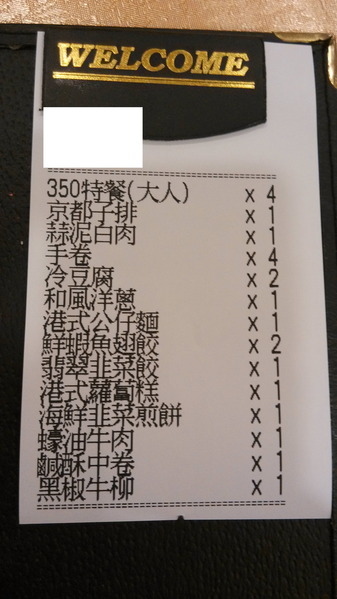 WELCOME
350特餐(大人) x 4
京都子排 x 1
蒜泥白肉 x 1
手卷 x 4
冷豆腐 x 2
和風洋蔥 x 1
港式公仔麵 x 1
鮮蝦魚翅餃 x 2
翡翠韭菜餃 x 1
港式蘿蔔糕 x 1
海鮮韭菜煎餅 x 1
蠔油牛肉 x 1
鹹酥中卷 x 1
黑椒牛柳 x 1